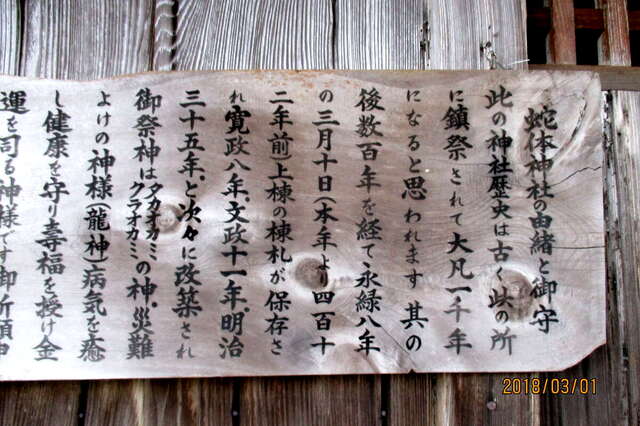 蛇体神社の由緒と御守
此の神社歴史は古く此の所
に鎮祭されて大凡一千年
になると思われます其の
後数百年を経て永緑八年
の三月十日(本年より四百十
二年前)上棟の棟札が保存さ
れ寛政八年、文政十一年、明治
三十五年、と次々に改築され
御祭神はタカオカミクラオカミの神、災難
よけの神様(龍神)病気を癒
し健康を守り寿福を授け金
運を司る神様です御祈願
2018/03/01